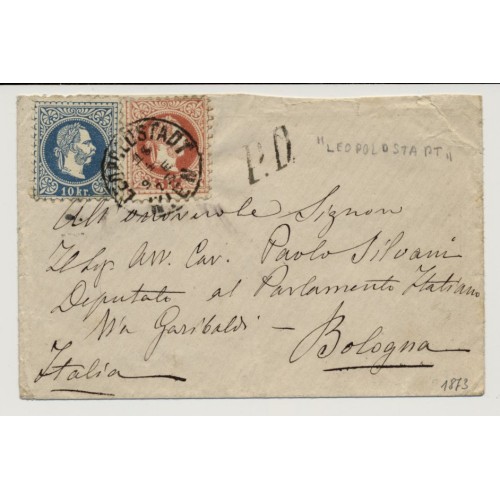 10 kr.
LEOPOLDSTADT WIEN
P.D.
"LEOPOLDSTADT"
All' onorevole Signor
Il Sig. Avv. Cav. Paolo Silvani
Deputato al Parlamento Italiano
Via Garibaldi —
Bologna
Italia
1873